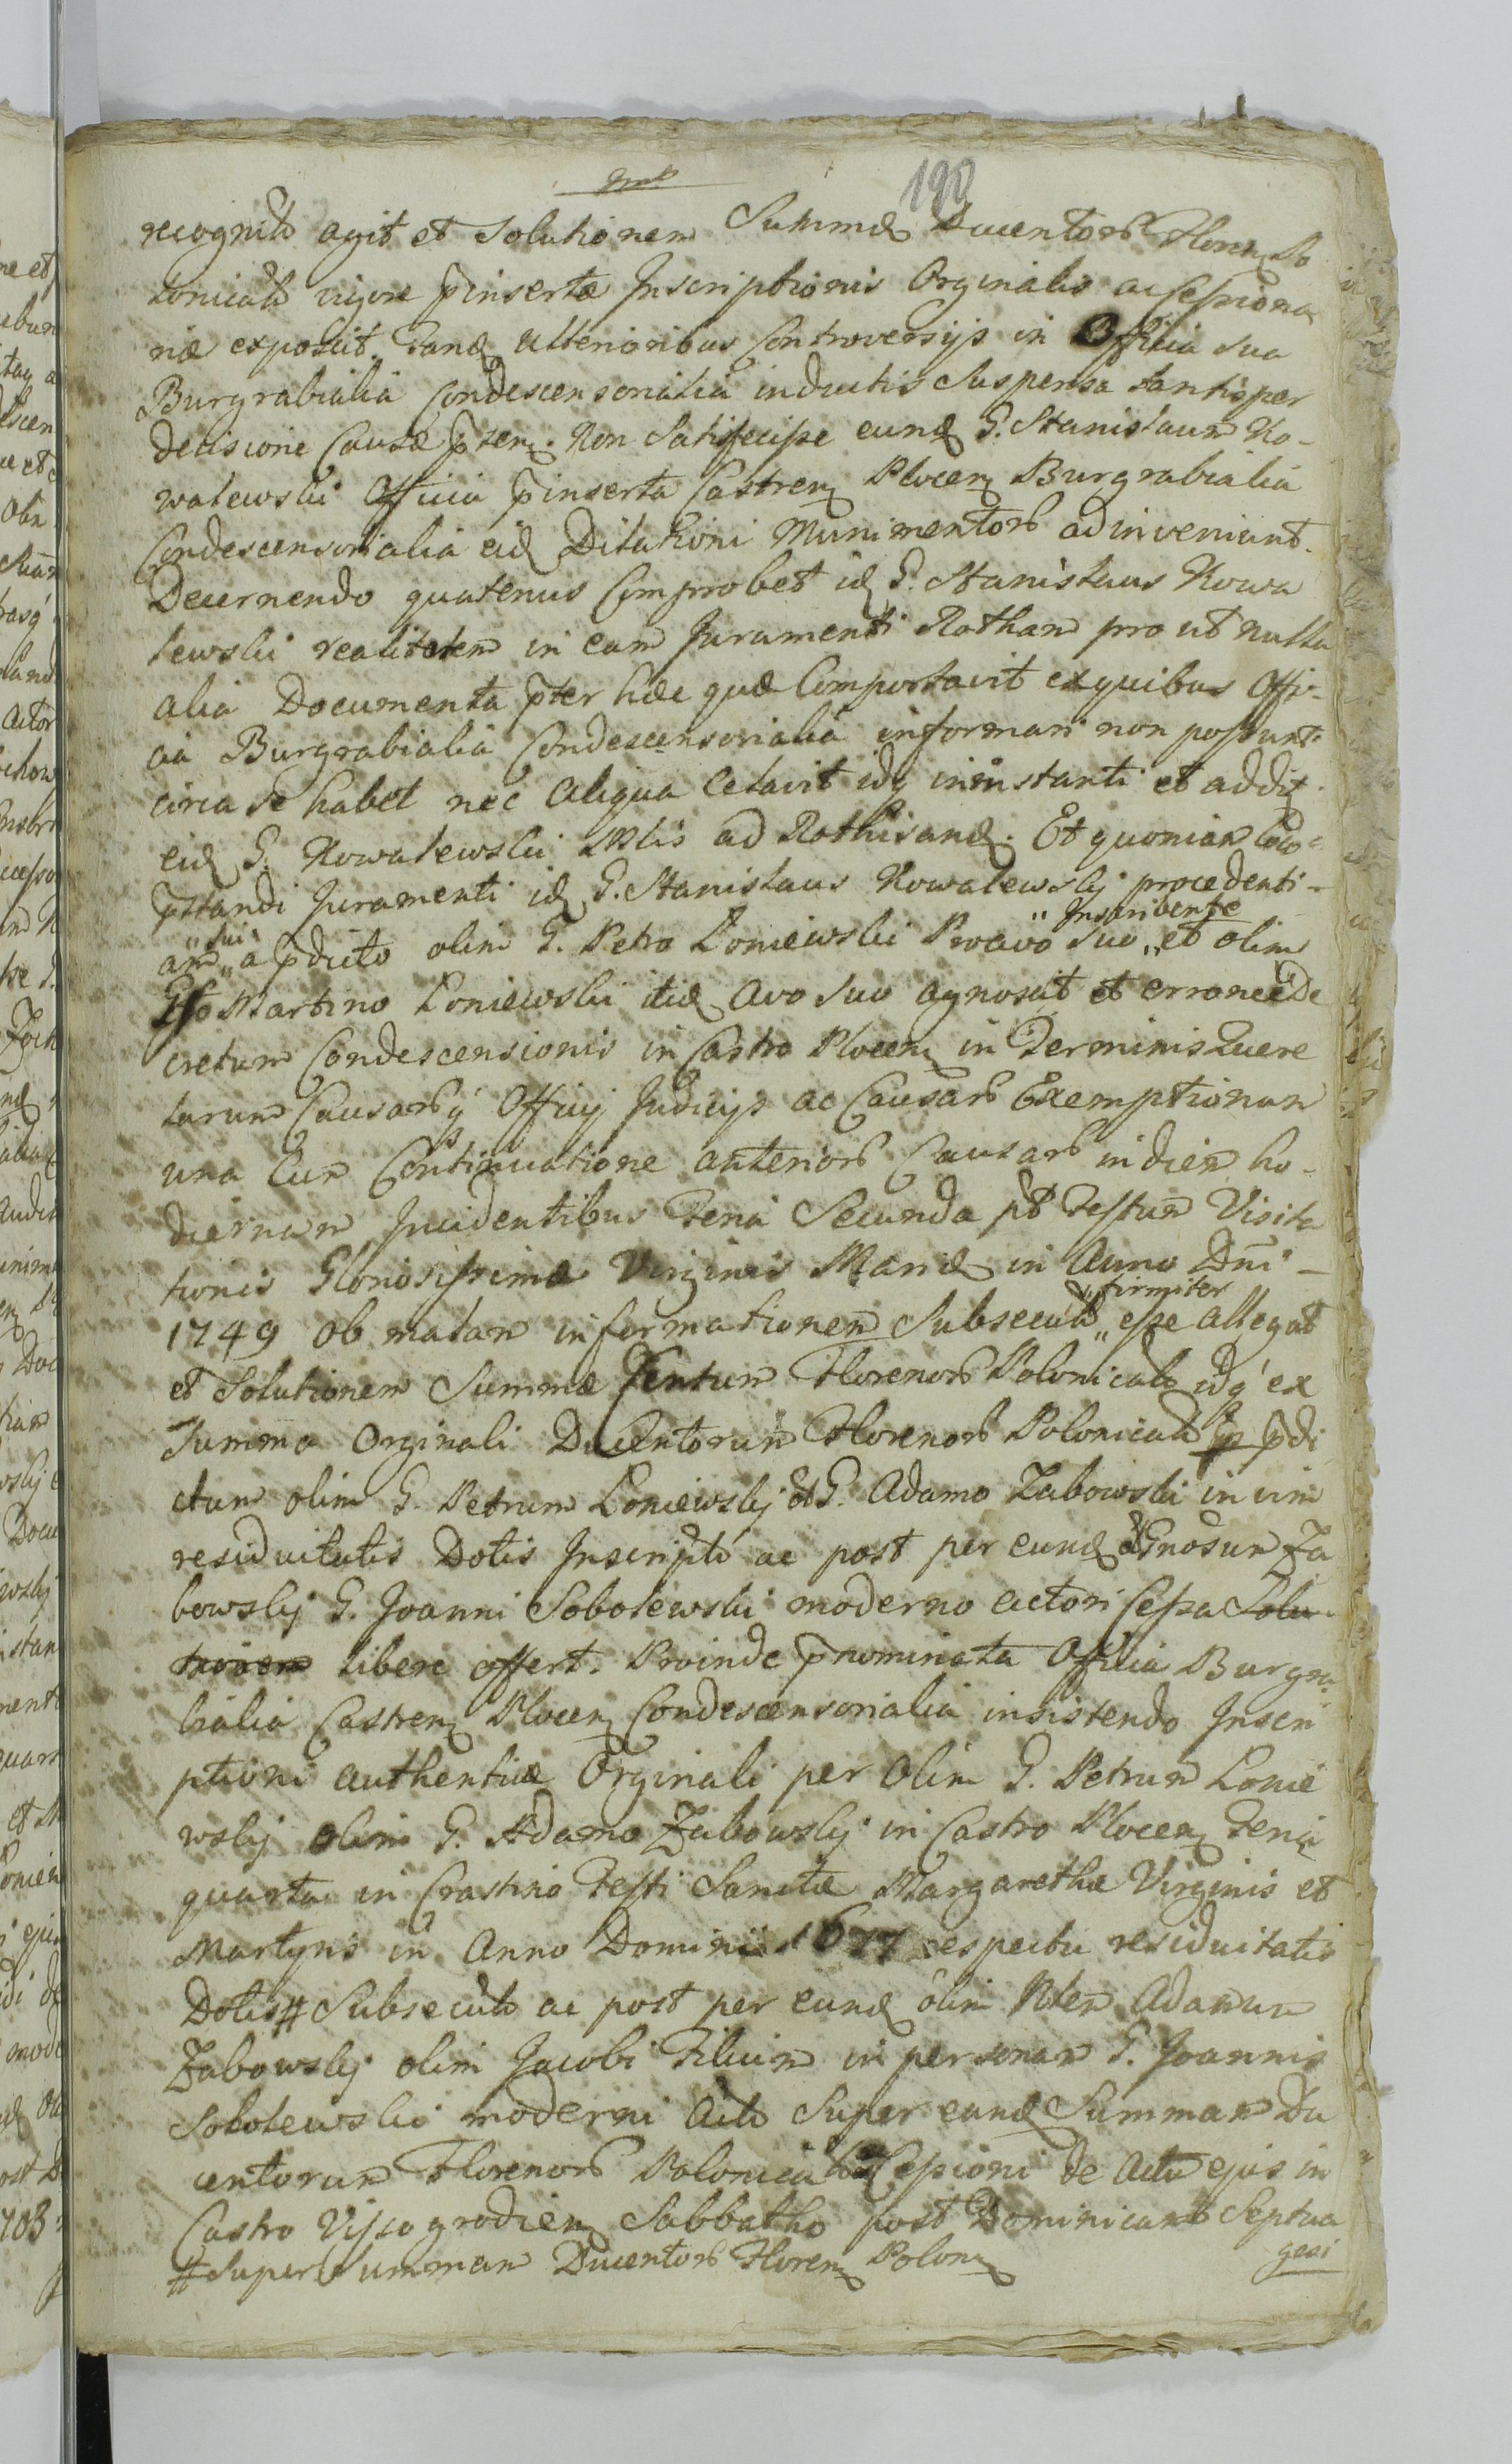 190
recognito agit et Solutionem Summæ Ducentorū Floren Po
lonicaliū vigore pinsertæ Inscriptionis Orginalis ac Cessiona
riæ exposcit. Tandē ulterioribus Controversijs in Officia sua
Burgrabialia Condescensorialia inductis Suspensa tantisper
Decisione Causæ pnten. Non Satisfecisse eundē G. Stanislaum Ko-
walewski Officia pinserta Castren Plocen Burgrabialia
Condescensorialia eid Dilationi Munimentorū adinveniunt.
Decernendo quatenus Comprobet id G. Stanislaus Kowa
lewski realitatem in eam Juramenti Rotham pro ut nulla
alia Documenta pter hæc quæ Comportavit ex quibus Offi-
cia Burgrabialia Condescensorialia informari non possunt
circa se habet nec aliqua Celavit idq in instanti et addit
eid G. Kowalewski Mtlis ad Rothisand. Et quoniam loco
pstandi Juramenti id G. Stanislaus Kowalewskj procedenti-
am "sui" a pdicto olim G. Petro Loniewski Proavo suo "Inscribente" et olim
Gso Martino Loniewski itid Avo suo agnoscit et erronee De
cretum Condescensionis in Castro Plocen in Terminis Quere
larum Causarūq Officij Judicijs ac Causarū Exemptionum
una Cum Continuatione anteriorū Causarū in diem ho-
diernam Incidentibus Feria Secunda pt Festum Visita
tionis Gloriosissimæ Virginis Mariæ in Anno Dni
1749 ob malam informationem Subsecutū "firmiter esse allegat
et Solutionem Summæ Centum Florenorū Polonicaliū idq ex
Summa Orginali Ducentorum Florenorū Polonicaliū p pdi
ctum olim G. Petrum Loniewskj G. Adamo Zabowski in vim
residuitatis Dotis Inscripti ac post per eund Gnosum Za
bowskj G. Joanni Sobolewski moderno actori Cessa Solu
tionem libere offert. Proinde pnominata Officia Burgra
bialia Castren Plocen Condescensorialia insistendo Inscri
ptioni authenticæ Orginali per olim G. Petrum Lonie
wskj olim G. Adamo Zabowskj in Castro Plocen Feria
quarta in Crastino Festi Sanctæ Margarethæ Virginis et
Martyris in Anno Domini 1677 respectu residuitatis
Dotis # Subsecuto ac post per eund olim Nlem Adamum
Zabowskj olim Jacobi Filium in personam G. Joannis
Sobolewski moderni Acts Super eand Summam Du
centorum Florenorū Polonicaliū Cessioni de Actu ejus in
Castro Vissogrodien Sabbatho post Dominicam Septua
# Super Summam Ducentorū Floren Polon
gesi